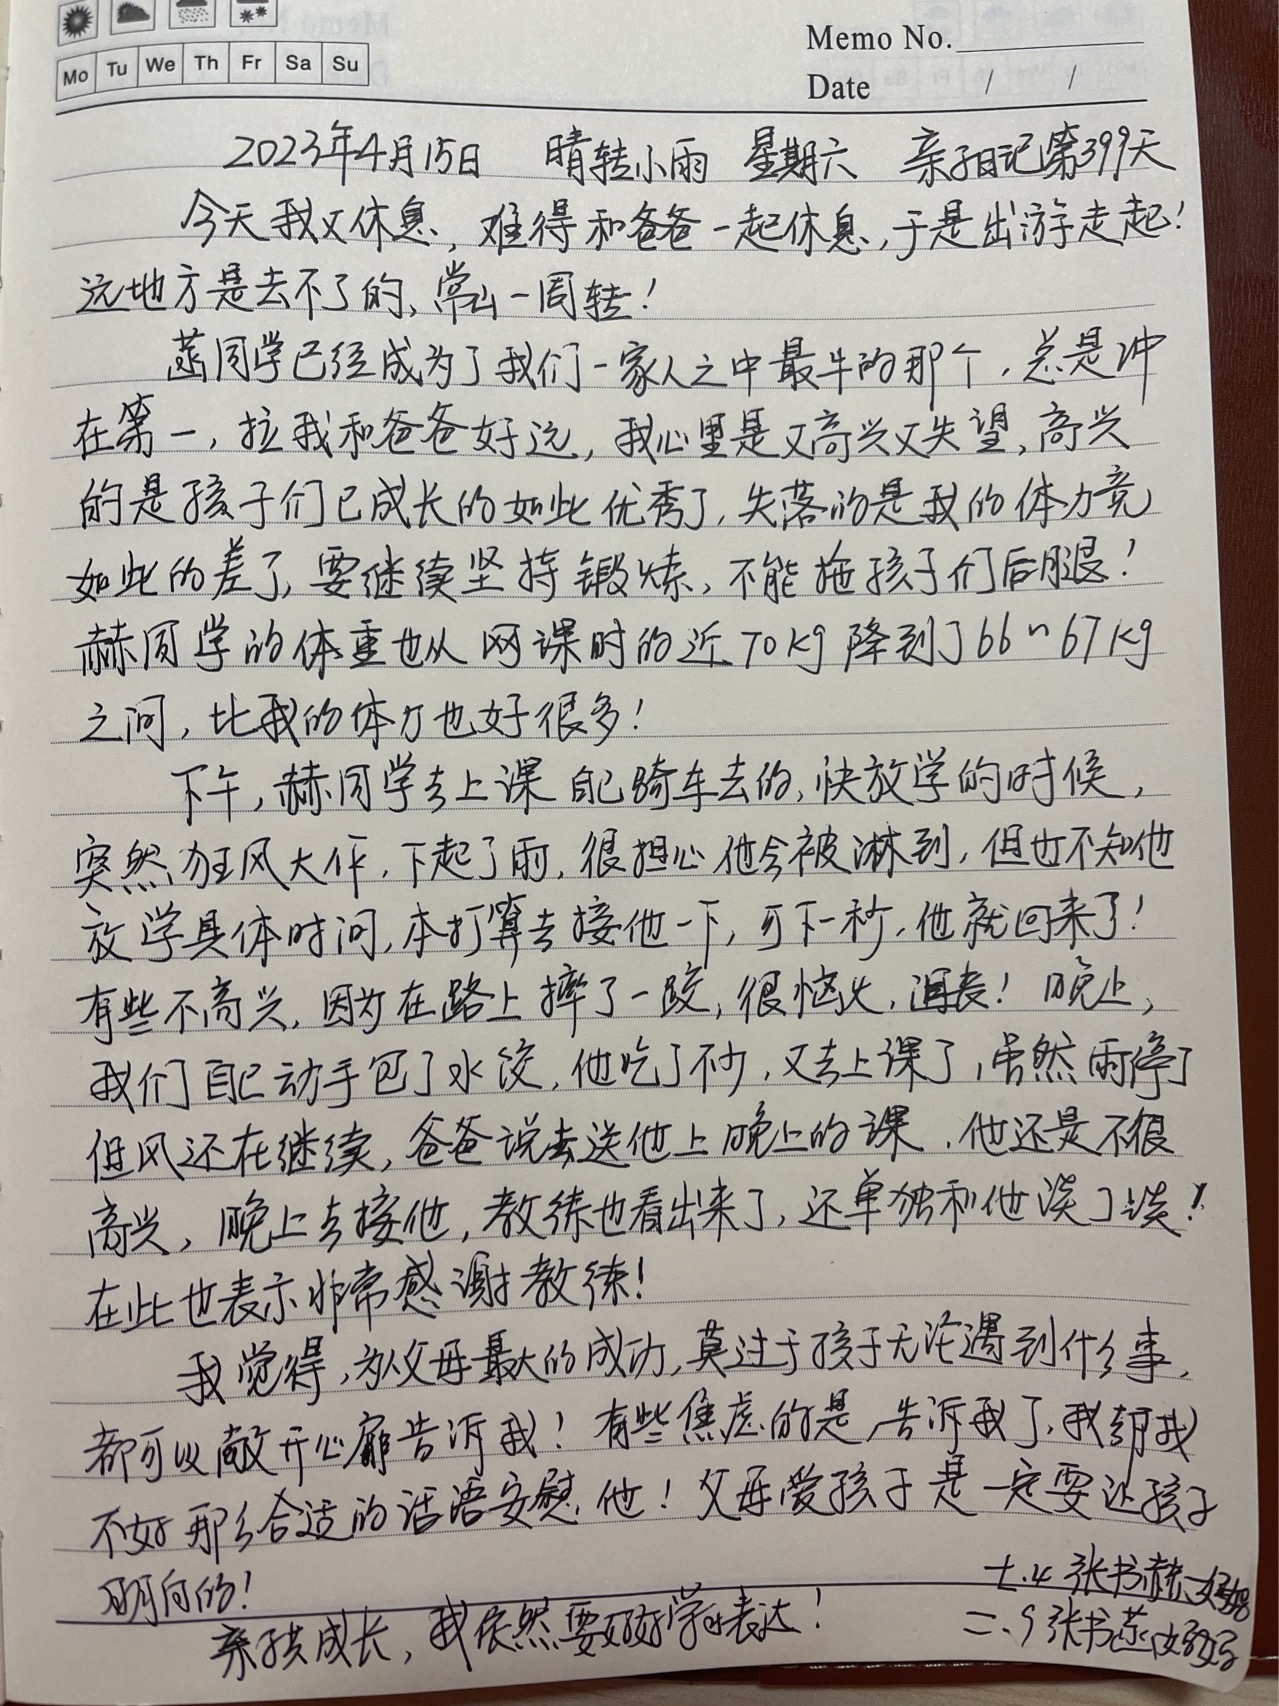 Mo Tu We Th Fr Sa Su
Memo No.
Date / /
2023年4月15日 晴转小雨 星期六 亲子日记第399天
今天我又休息,难得和爸爸一起休息,于是出游走起!
远地方是去不了的,常山一周转!
菡同学已经成为了我们一家人之中最牛的那个,总是冲
在第一,拉我和爸爸好远,我心里是又高兴又失望,高兴
的是孩子们已成长的如此优秀了,失落的是我的体力竟
如此的差了,要继续坚持锻炼,不能拖孩子们后腿!
赫同学的体重也从网课时的近70kg降到了66~67kg
之间,比我的体力也好很多!
下午,赫同学去上课自己骑车去的,快放学的时候,
突然狂风大作,下起了雨,很担心他会被淋到,但也不知他
放学具体时间,本打算去接他一下,可下一秒,他就回来了!
有些不高兴,因为在路上摔了一跤,很恼火,沮丧!晚上,
我们自己动手包了水饺,他吃了不少,又去上课了,虽然雨停了
但风还在继续,爸爸说去送他上晚上的课,他还是不很
高兴,晚上去接他,教练也看出来了,还单独和他谈了谈!
在此也表示非常感谢教练!
我觉得,为父母最大的成功,莫过于孩子无论遇到什么事,
都可以敞开心扉告诉我!有些焦虑的是,告诉我了,我却找
不好那么合适的话语安慰他!父母爱孩子是一定要让孩子
明白的!
七.4 张书赫妈妈
亲子共成长,我依然要好好学习表达!
二.9 张书菡妈妈